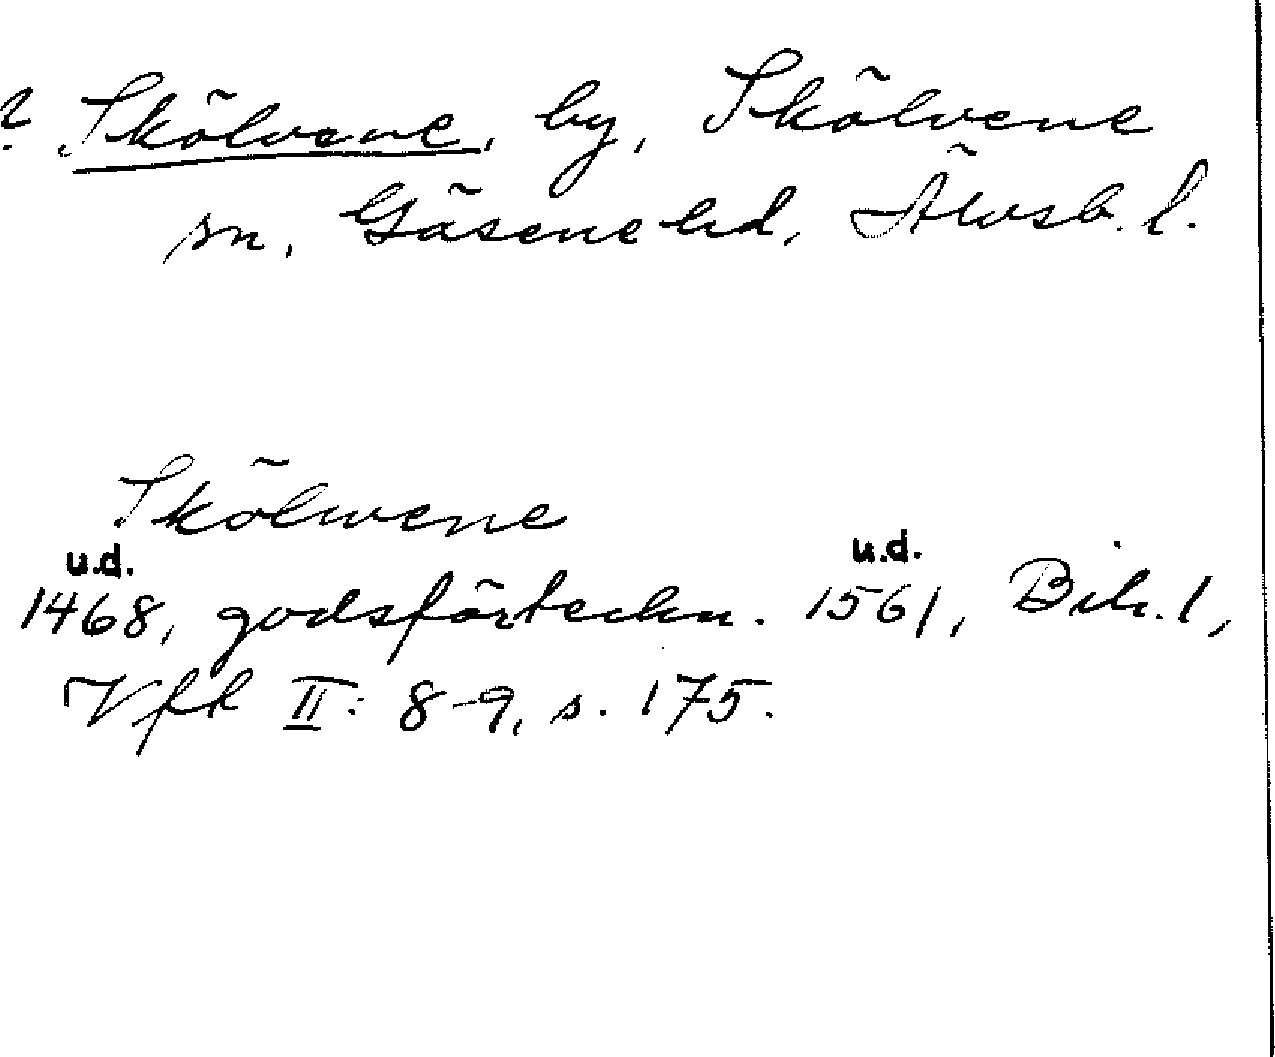 ? Skölvene, by, Skölvene
sn, Gäsene hd, Älvsb. l.
Skölwene
u.d. u.d.
1468, godsförteckn. 1561, Bih. 1,
Vfk II: 8-9, s. 175.